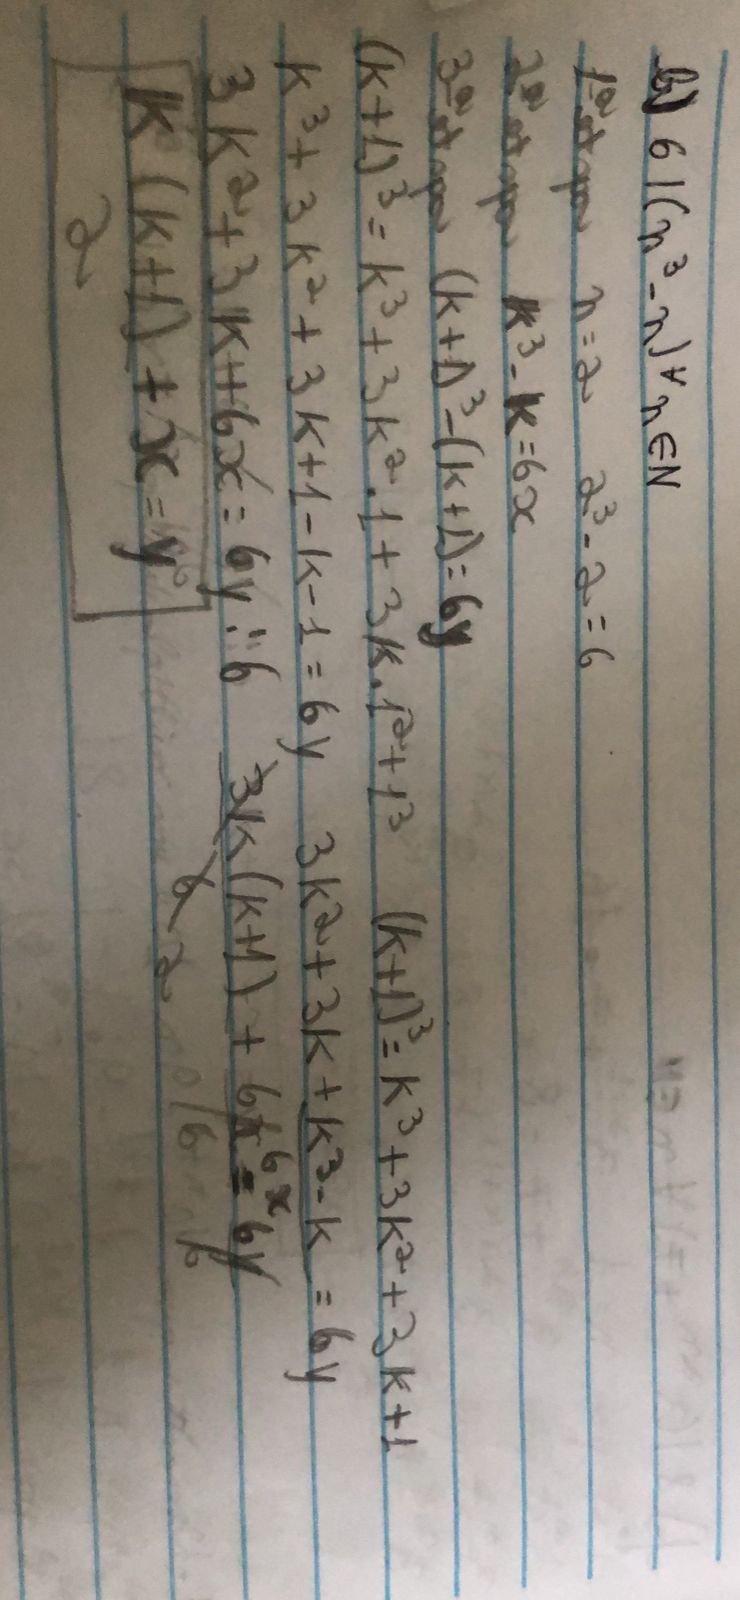 b) 6|(n³-n) ∀ n ∈ N
1ª etapa n=2 2³-2=6
2ª etapa k³-k=6x
3ª etapa (k+1)³-(k+1)=6y
(k+1)³=k³+3k².1+3k.1²+1³ (k+1)³=k³+3k²+3k+1
k³+3k²+3k+1-k-1=6y 3k²+3k+k³-k=6y
6x
3k²+3k+6x=6y÷6 3k(k+1)+6x=6y
6 2
k(k+1)+x=y
2